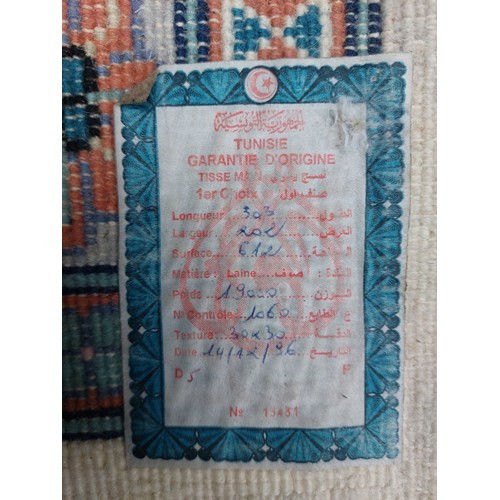 الجمهورية التونسية
TUNISIE
GARANTIE D'ORIGINE
TISSE MAIN نسيج يدوي
1er Choix صنف اول
Longueur...303...الطول
Largeur...202...العرض
Surface...612...المساحة
Matière : Laine...صوف...المادة :
Poids...19000...الوزن
N° Contrôle...1060...ع. الطابع
Texture...30x30...الدقة
Date...14/12/96...التاريخ
D 5 F
№ 13431